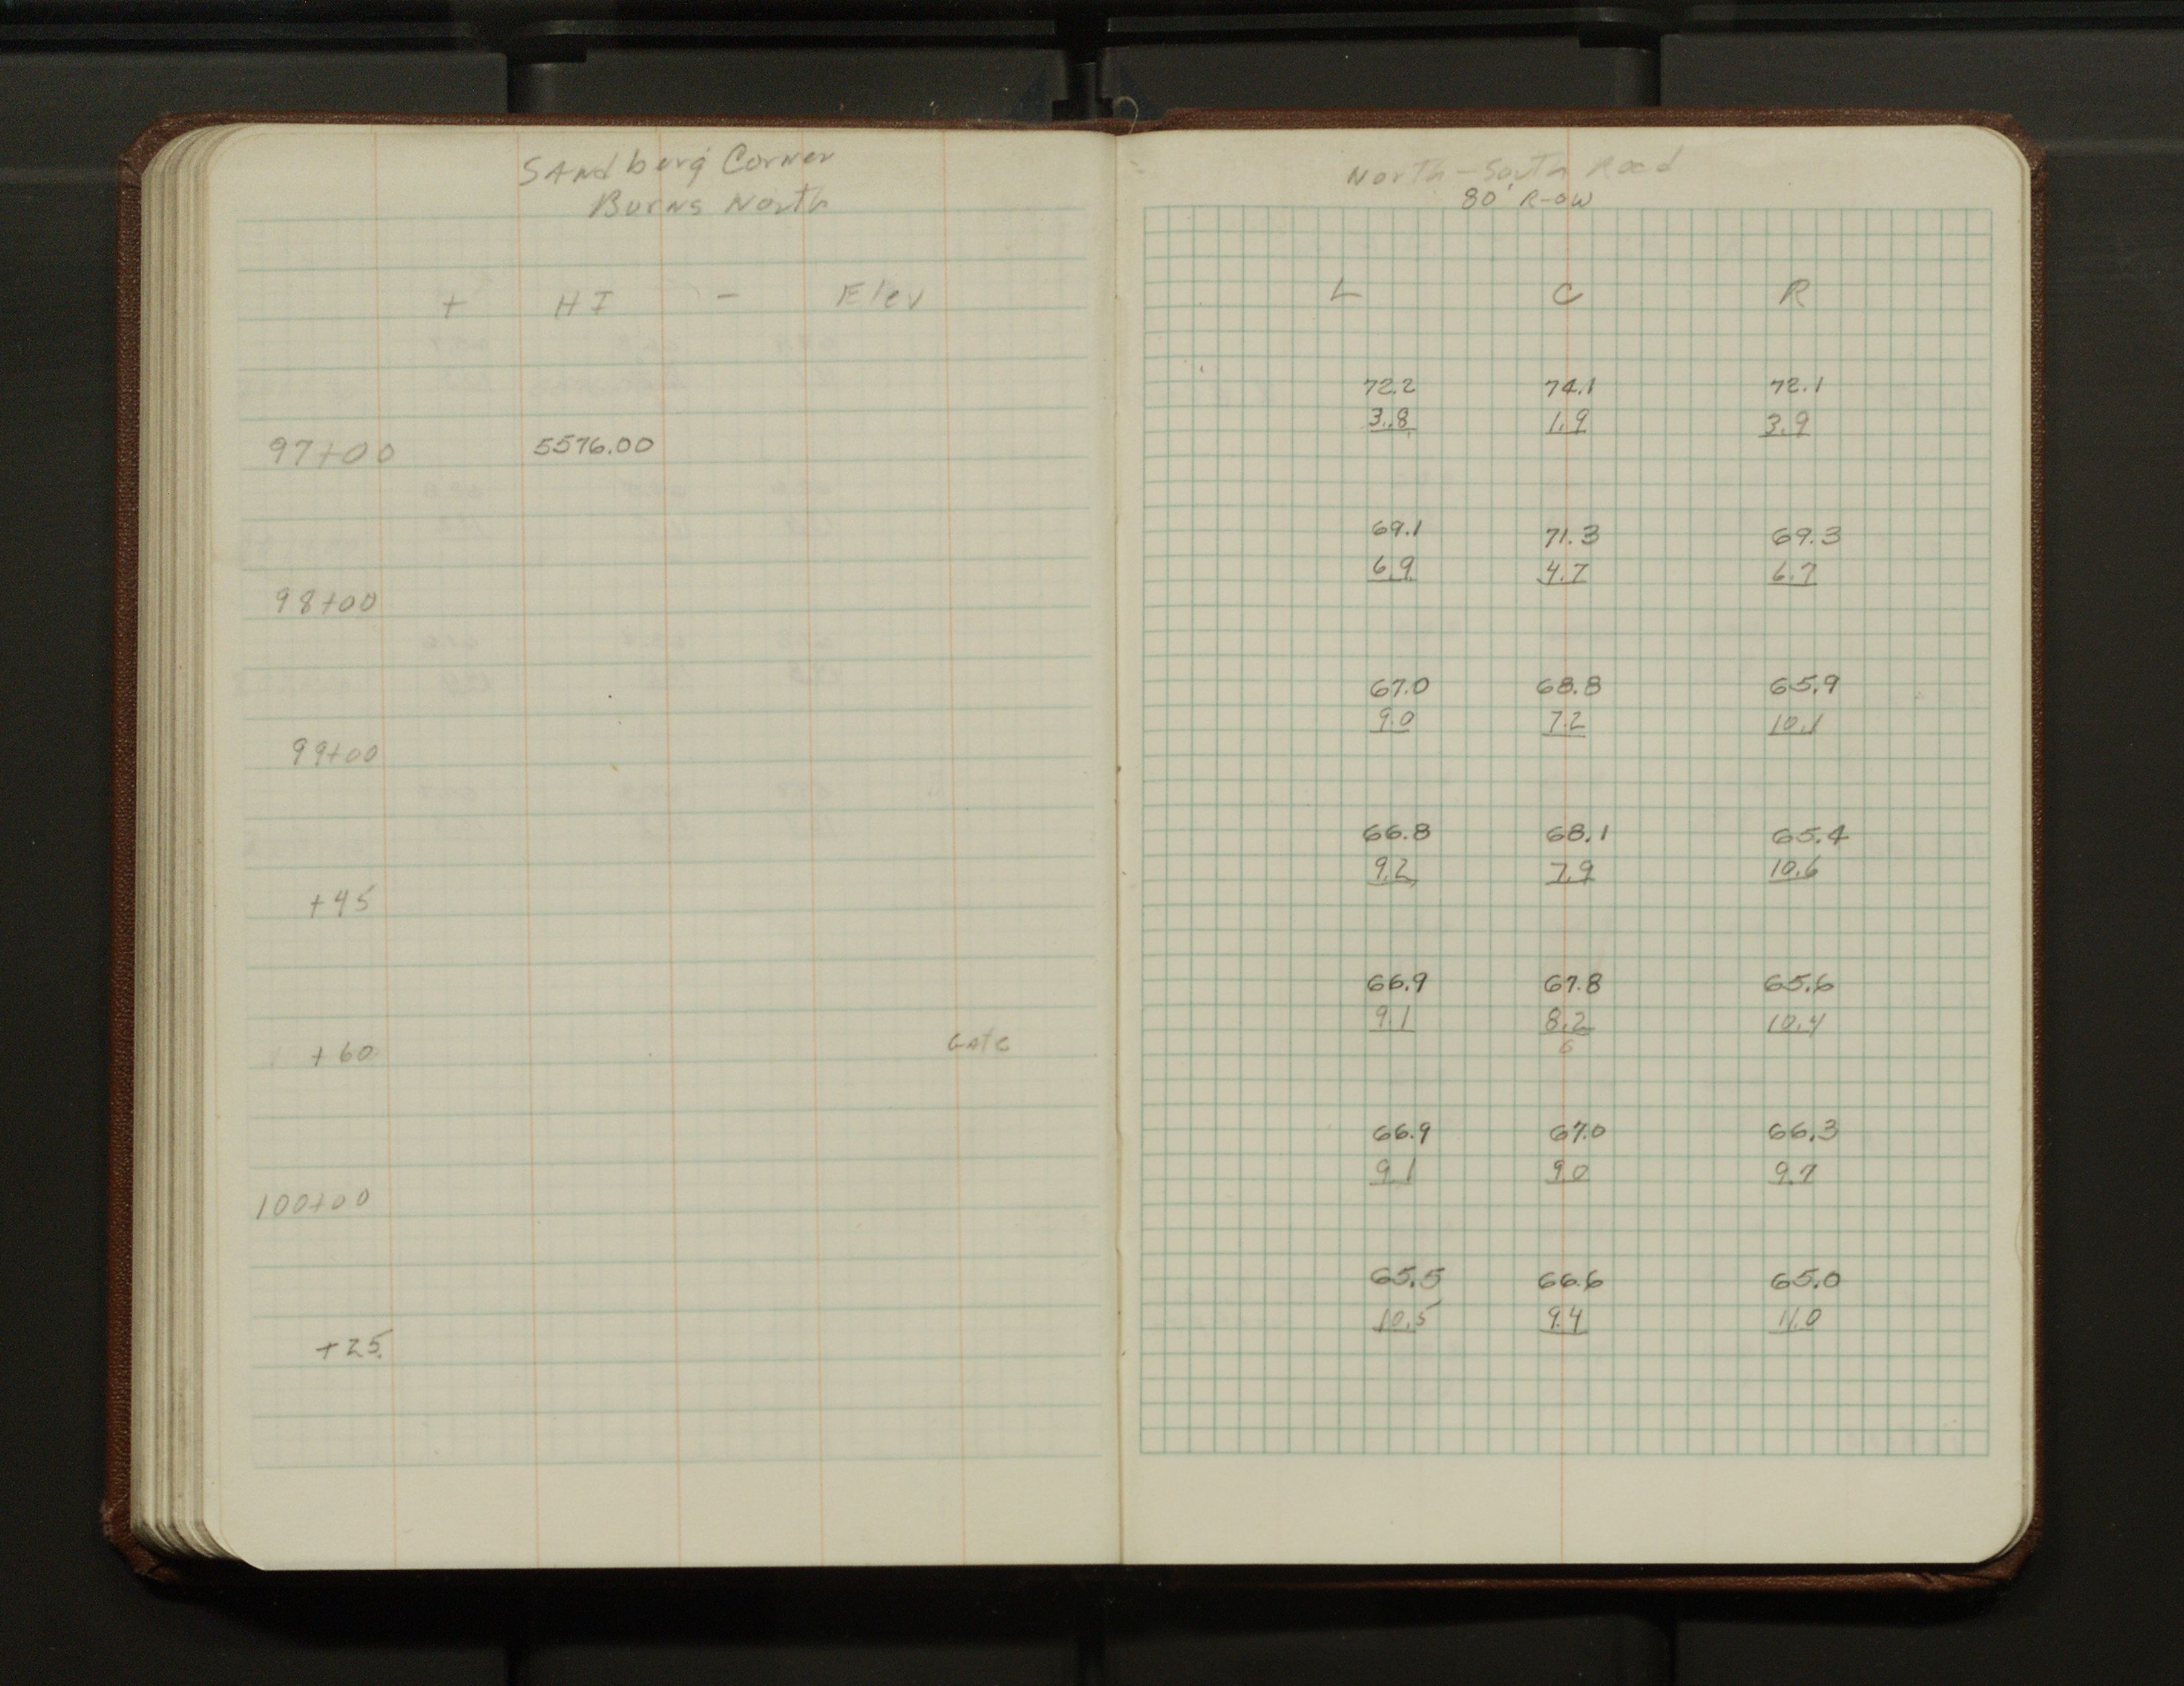 Sandberg Corner
Burns North
+ HI - Elev
97+00 5576.00
98+00
99+00
+45
+60 Gate
100+00
+25
North-South Road
80' R-OW
L C R
72.2 74.1 72.1
3.8 1.9 3.9
69.1 71.3 69.3
6.9 4.7 6.7
67.0 68.8 65.9
9.0 7.2 10.1
66.8 68.1 65.4
9.2 7.9 10.6
66.9 67.8 65.6
9.1 8.2 10.4
66.9 67.0 66.3
9.1 9.0 9.7
65.5 66.6 65.0
10.5 9.4 11.0